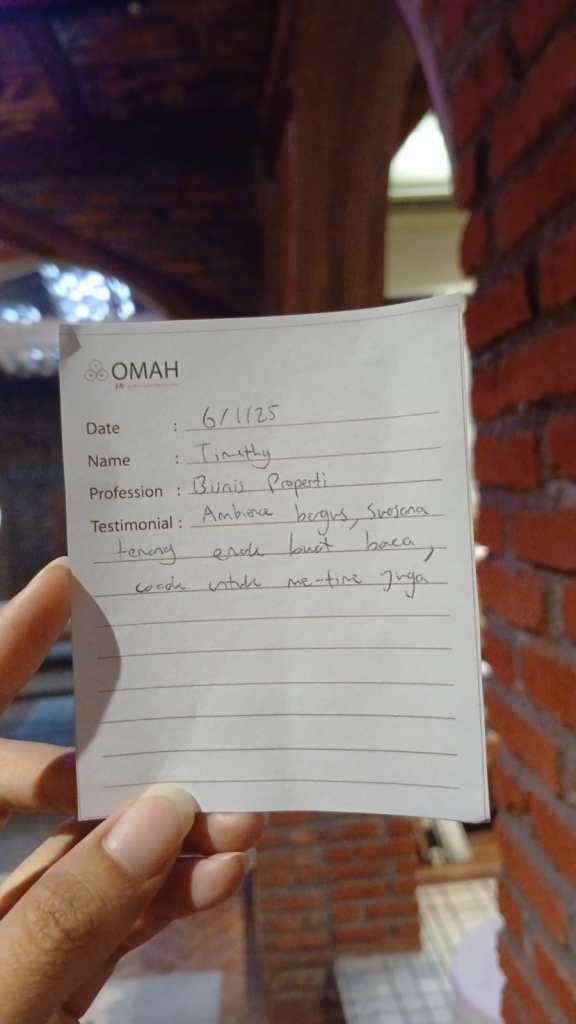 OMAH
Date : 6/1/25
Name : Timothy
Profession : Bisnis Properti
Testimonial : Ambience bagus, suasana
tenang enak buat baca,
cocok untuk me-time juga